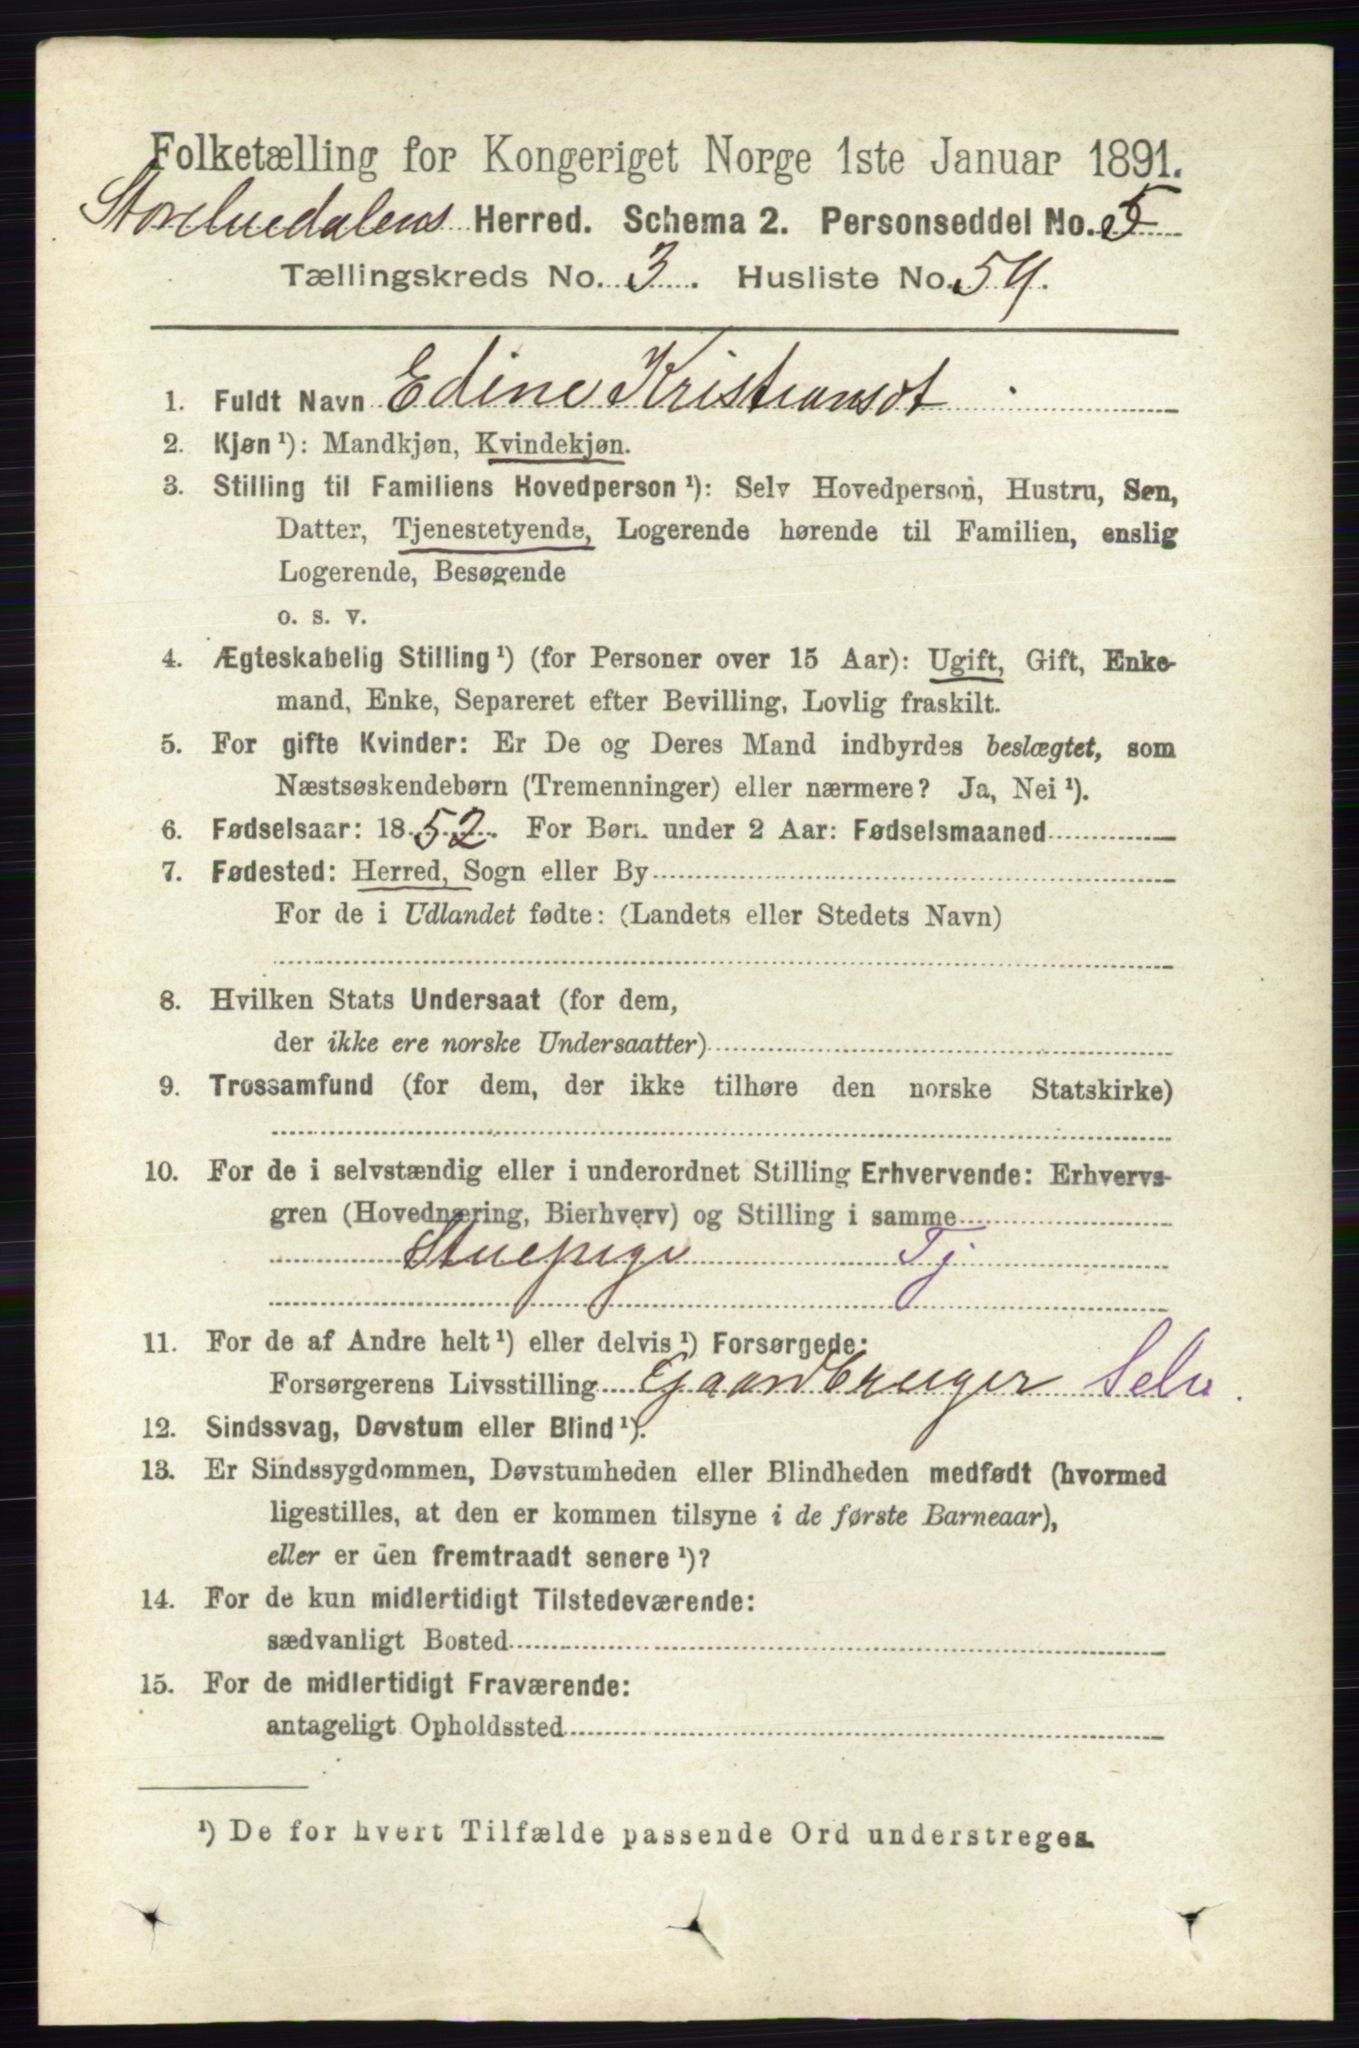 Folketælling for Kongeriget Norge 1ste Januar 1891.
Storelvedalens Herred. Schema 2. Personseddel No. 5
Tællingskreds No. 3. Husliste No. 59.
1. Fuldt Navn Edine Kristiansdt
2. Kjøn ¹): Mandkjøn, Kvindekjøn.
3. Stilling til Familiens Hovedperson ¹): Selv Hovedperson, Hustru, Søn,
Datter, Tjenestetyende, Logerende hørende til Familien, enslig
Logerende, Besøgende
o. s. v.
4. Ægteskabelig Stilling ¹) (for Personer over 15 Aar): Ugift, Gift, Enke-
mand, Enke, Separeret efter Bevilling, Lovlig fraskilt.
5. For gifte Kvinder: Er De og Deres Mand indbyrdes beslægtet, som
Næstsøskendebørn (Tremenninger) eller nærmere? Ja, Nei ¹).
6. Fødselsaar: 1852. For Børn under 2 Aar: Fødselsmaaned
7. Fødested: Herred, Sogn eller By
For de i Udlandet fødte: (Landets eller Stedets Navn)
8. Hvilken Stats Undersaat (for dem,
der ikke ere norske Undersaatter)
9. Trossamfund (for dem, der ikke tilhøre den norske Statskirke)
10. For de i selvstændig eller i underordnet Stilling Erhvervende: Erhvervs-
gren (Hovednæring, Bierhverv) og Stilling i samme
Stuepige Tj
11. For de af Andre helt ¹) eller delvis ¹) Forsørgede:
Forsørgerens Livsstilling Gaardbruger Selv.
12. Sindssvag, Døvstum eller Blind ¹).
13. Er Sindssygdommen, Døvstumheden eller Blindheden medfødt (hvormed
ligestilles, at den er kommen tilsyne i de første Barneaar),
eller er den fremtraadt senere ¹)?
14. For de kun midlertidigt Tilstedeværende:
sædvanligt Bosted
15. For de midlertidigt Fraværende:
antageligt Opholdssted
¹) De for hvert Tilfælde passende Ord understreges.